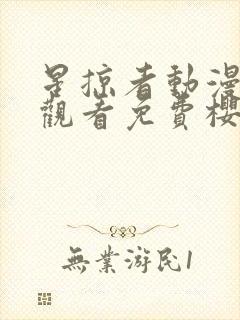 星掠者動漫
觀看免費櫻
無業游民1